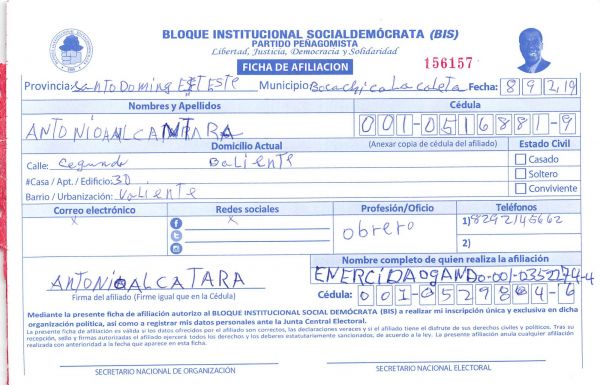 BLOQUE INSTITUCIONAL SOCIALDEMÓCRATA (BIS)
PARTIDO PEÑAGOMISTA
Libertad, Justicia, Democracia y Solidaridad
FICHA DE AFILIACION
156157
Provincia: Santo Doming EsTE STE Municipio: Bocachica La caleta Fecha: 8 9 2,19
Nombres y Apellidos Cédula
ANTONIO ALCANTARA 001-0516881-9
Domicilio Actual (Anexar copia de cédula del afiliado) Estado Civil
Calle: Segundo Baliente Casado
#Casa / Apt. / Edificio: 3D Soltero
Barrio / Urbanización: Valiente Conviviente
Correo electrónico Redes sociales Profesión/Oficio Teléfonos
x x obrero 1) 8292145662
2)
Nombre completo de quien realiza la afiliación
ANTONIO ALCATARA ENERCIDA OGANDO
Firma del afiliado (Firme igual que en la Cédula) Cédula: 001-0529884-6
Mediante la presente ficha de afiliación autorizo al BLOQUE INSTITUCIONAL SOCIAL DEMÓCRATA (BIS) a realizar mi inscripción única y exclusiva en dicha
organización política, así como a registrar mis datos personales ante la Junta Central Electoral.
La presente ficha de afiliación es válida si los datos ofrecidos por el afiliado son correctos, las declaraciones veraces y si el afiliado tiene el disfrute de sus derechos civiles y políticos. Tras su
recepción, sello y firmas autorizadas el afiliado ejercerá todos los derechos y los deberes estatutariamente sancionados, de acuerdo a la ley. La presente afiliación anula cualquier afiliación
realizada con anterioridad a la fecha que aparece en esta ficha.
SECRETARIO NACIONAL DE ORGANIZACIÓN SECRETARIO NACIONAL ELECTORAL